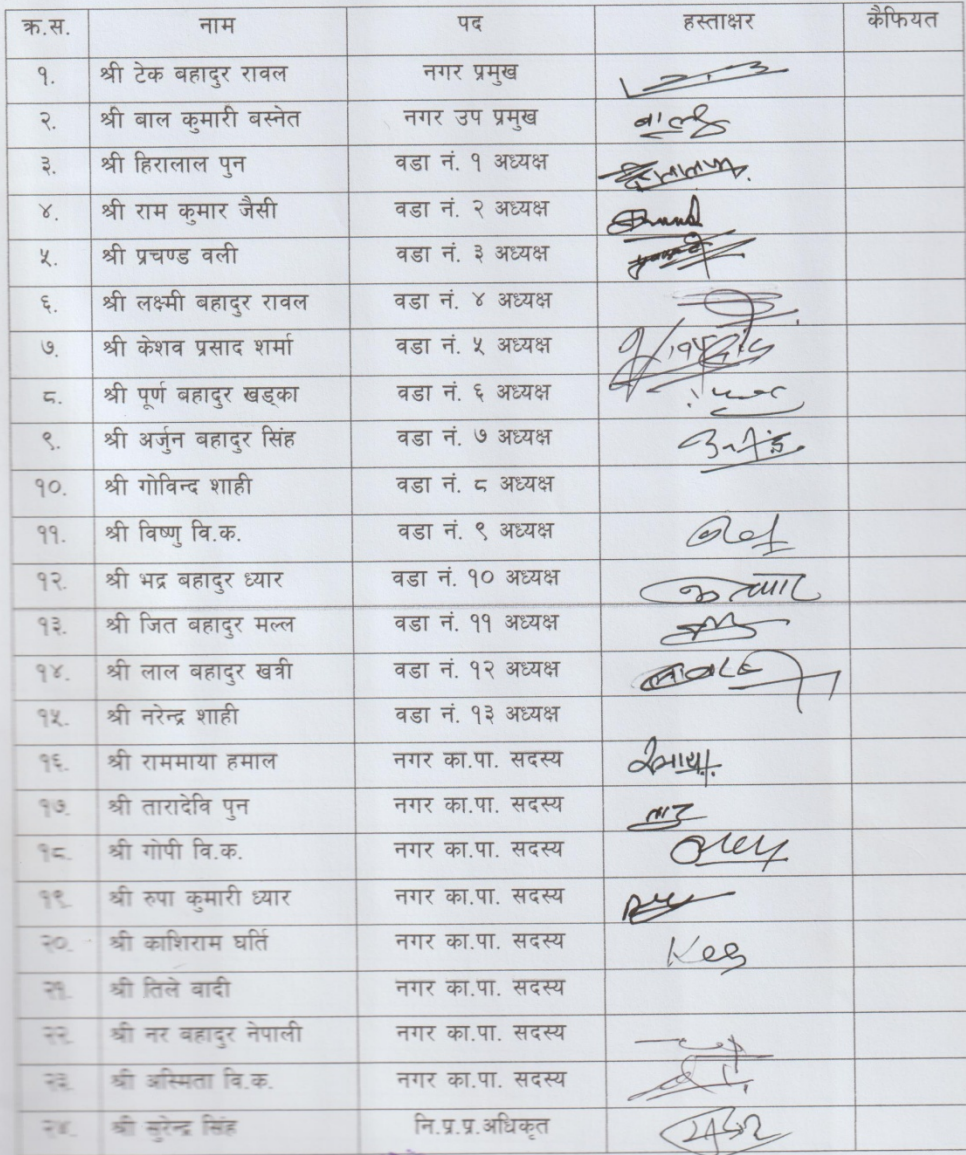 क्र.स. नाम पद हस्ताक्षर कैफियत
१. श्री टेक बहादुर रावल नगर प्रमुख
२. श्री बाल कुमारी वस्नेत नगर उप प्रमुख
३. श्री हिरालाल पुन वडा नं. १ अध्यक्ष
४. श्री राम कुमार जैसी वडा नं. २ अध्यक्ष
५. श्री प्रचण्ड वली वडा नं. ३ अध्यक्ष
६. श्री लक्ष्मी बहादुर रावल वडा नं. ४ अध्यक्ष
७. श्री केशव प्रसाद शर्मा वडा नं. ५ अध्यक्ष
८. श्री पूर्ण बहादुर खड्का वडा नं. ६ अध्यक्ष
९. श्री अर्जुन बहादुर सिंह वडा नं. ७ अध्यक्ष
१०. श्री गोविन्द शाही वडा नं. ८ अध्यक्ष
११. श्री विष्णु वि.क. वडा नं. ९ अध्यक्ष
१२. श्री भद्र बहादुर ध्यार वडा नं. १० अध्यक्ष
१३. श्री जित बहादुर मल्ल वडा नं. ११ अध्यक्ष
१४. श्री लाल बहादुर खत्री वडा नं. १२ अध्यक्ष
१५. श्री नरेन्द्र शाही वडा नं. १३ अध्यक्ष
१६. श्री राममाया हमाल नगर का.पा. सदस्य
१७. श्री तारादेवि पुन नगर का.पा. सदस्य
१८. श्री गोपी वि.क. नगर का.पा. सदस्य
१९. श्री रुपा कुमारी ध्यार नगर का.पा. सदस्य
२०. श्री काशिराम घर्ति नगर का.पा. सदस्य
२१. श्री तिले वादी नगर का.पा. सदस्य
२२. श्री नर बहादुर नेपाली नगर का.पा. सदस्य
२३. श्री अस्मिता वि.क. नगर का.पा. सदस्य
२४. श्री सुरेन्द्र सिंह नि.प्र.प्र.अधिकृत